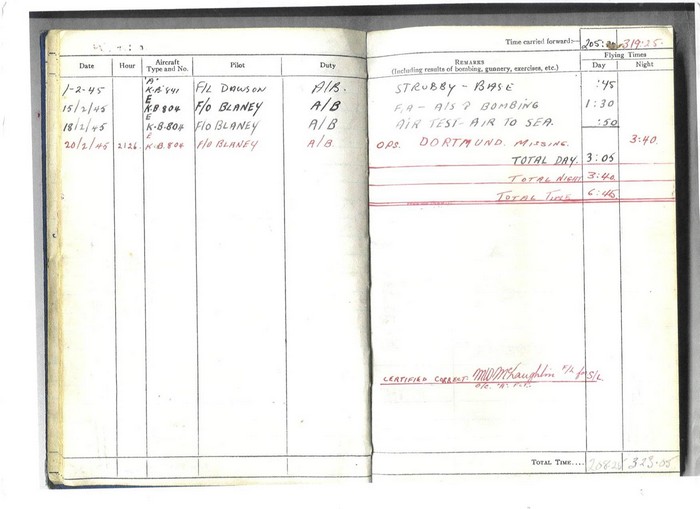 Time carried forward:— 205: 319:25.
Date Hour Aircraft Type and No. Pilot Duty
REMARKS (Including results of bombing, gunnery, exercises, etc.)
Flying Times
Day Night
1-2-45 "A" K.B. 841 F/L DAWSON A/B. STRUBBY - BASE :45
15/2/45 E K.B 804 F/O BLANEY A/B F.A - A/S ? BOMBING 1:30
18/2/45 E K-B-804 F/O BLANEY A/B AIR TEST- AIR TO SEA. :50
20/2/45 2126. E K.B. 804 F/O BLANEY A/B OPS. DORTMUND. MISSING. 3:40
TOTAL DAY. 3:05
TOTAL NIGHT 3:40
TOTAL TIME 6:45
CERTIFIED CORRECT. McLaughlin F/L for S/L
O/C. "A" FLT.
TOTAL TIME.... 323.05